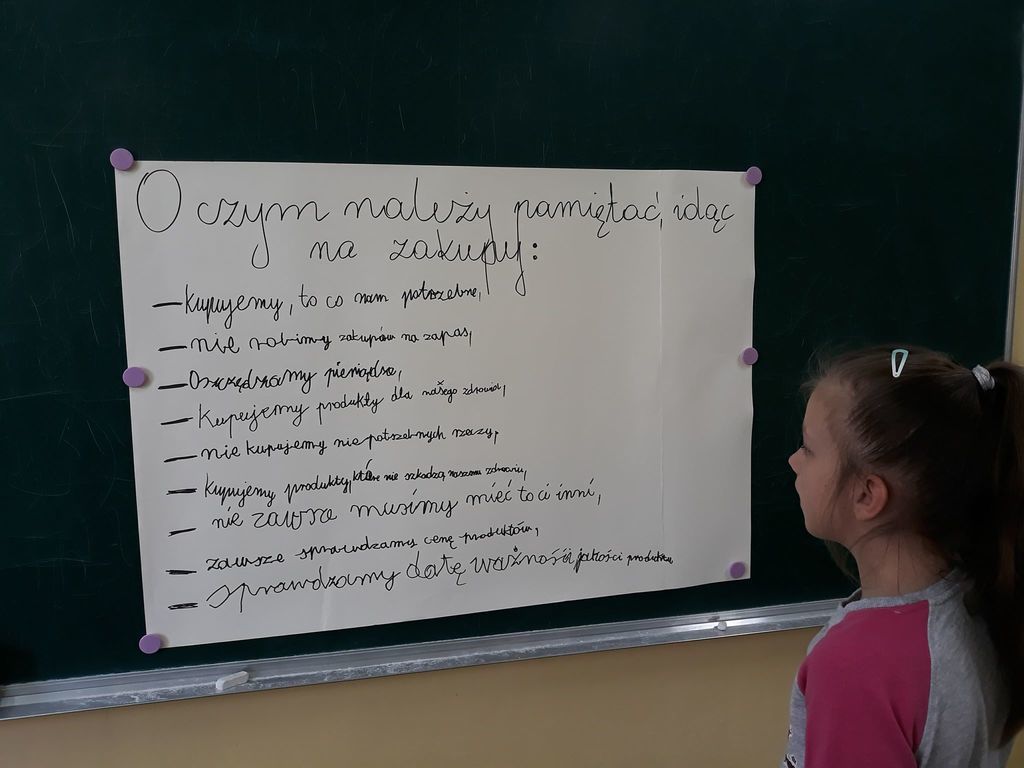 O czym należy pamiętać, idąc
na zakupy:
— Kupujemy, to co nam potrzebne,
— nie robimy zakupów na zapas,
— Oszczędzamy pieniądze,
— Kupujemy produkty dla naszego zdrowia,
— nie kupujemy niepotrzebnych rzeczy,
— Kupujemy produkty, które nie szkodzą naszemu zdrowiu,
— nie zawsze musimy mieć to ci inni,
— zawsze sprawdzamy cenę produktów,
— sprawdzamy datę ważności i jakości produktu,